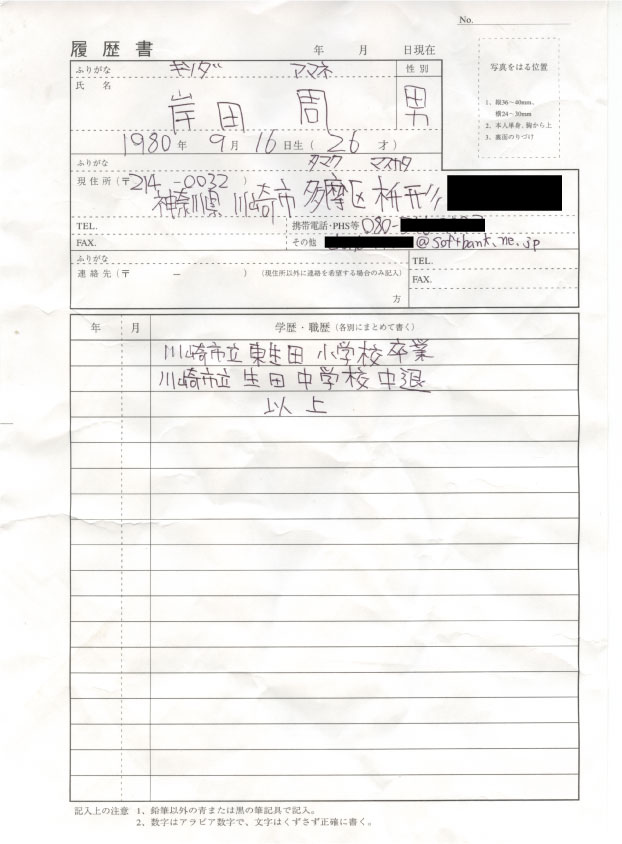 No.
履歴書 年 月 日現在
ふりがな キシダ アマネ 性別
氏名 岸田 周 男
写真をはる位置
1、縦36〜40mm、
横24〜30mm
2、本人単身、胸から上
3、裏面のりづけ
1980年 9月 16日生(26才)
ふりがな タマク マスガタ
現住所(〒214-0032)
神奈川県 川崎市 多摩区 枡形
TEL. 携帯電話・PHS等 080-
FAX. その他 @softbank.ne.jp
ふりがな TEL.
連絡先(〒 - ) (現住所以外に連絡を希望する場合のみ記入) FAX.
方
年 月 学歴・職歴(各別にまとめて書く)
川崎市立 東生田 小学校 卒業
川崎市立 生田 中学校 中退
以上
記入上の注意 1、鉛筆以外の青または黒の筆記具で記入。
2、数字はアラビア数字で、文字はくずさず正確に書く。